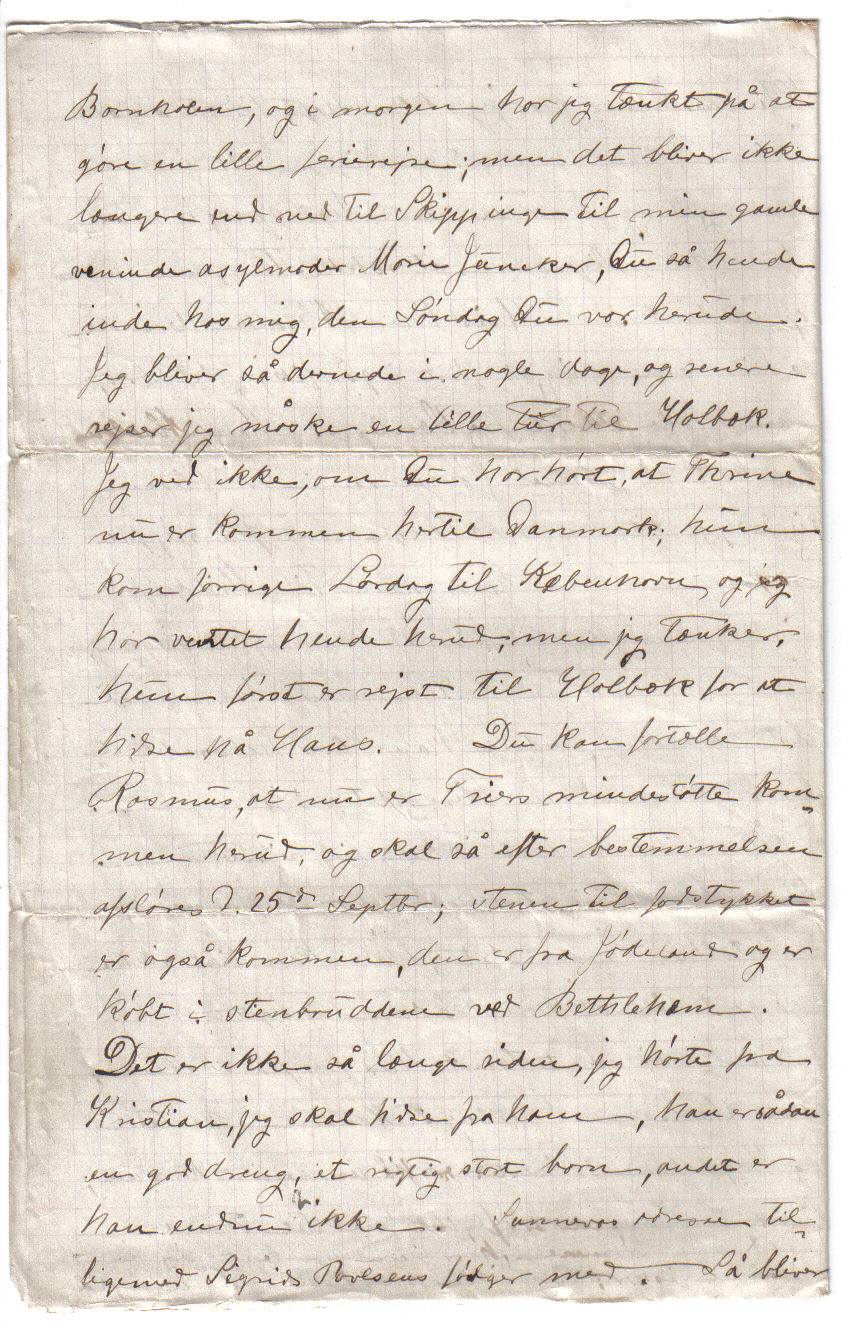 Bornholm, og i morgen har jeg tænkt på at
göre en lille ferierejse; men det bliver ikke
længere end ned til Skippinge til min gamle
veninde asylmoder Marie Juncker, Du så hende
inde hos mig, den Søndag Du var herude.
Jeg bliver så dernede i nogle dage, og senere
rejser jeg måske en lille tur til Holbæk.
Jeg ved ikke, om Du har hørt, at Thrine
nu er kommen hertil Danmark; hun
kom forrige Lørdag til København, og jeg
har ventet hende herud, men jeg tænker,
hun først er rejst til Holbæk for at
hilse på Hans. Du kan fortælle
Rasmus, at nu er Triers mindestøtte kom=
men herud, og skal så efter bestemmelsen
afsløres d. 25d Septbr; stenen til fodstykket
er også kommen, den er fra Jødeland og er
købt i stenbruddene ved Bethlehem.
Det er ikke så længe siden, jeg hørte fra
Kristian, jeg skal hilse fra ham, han er sådan
en god dreng, et rigtig stort barn, andet er
han endnu ikke. Sunnevas adresse til=
ligemed Sigrids Povlsens følger med. Så bliver